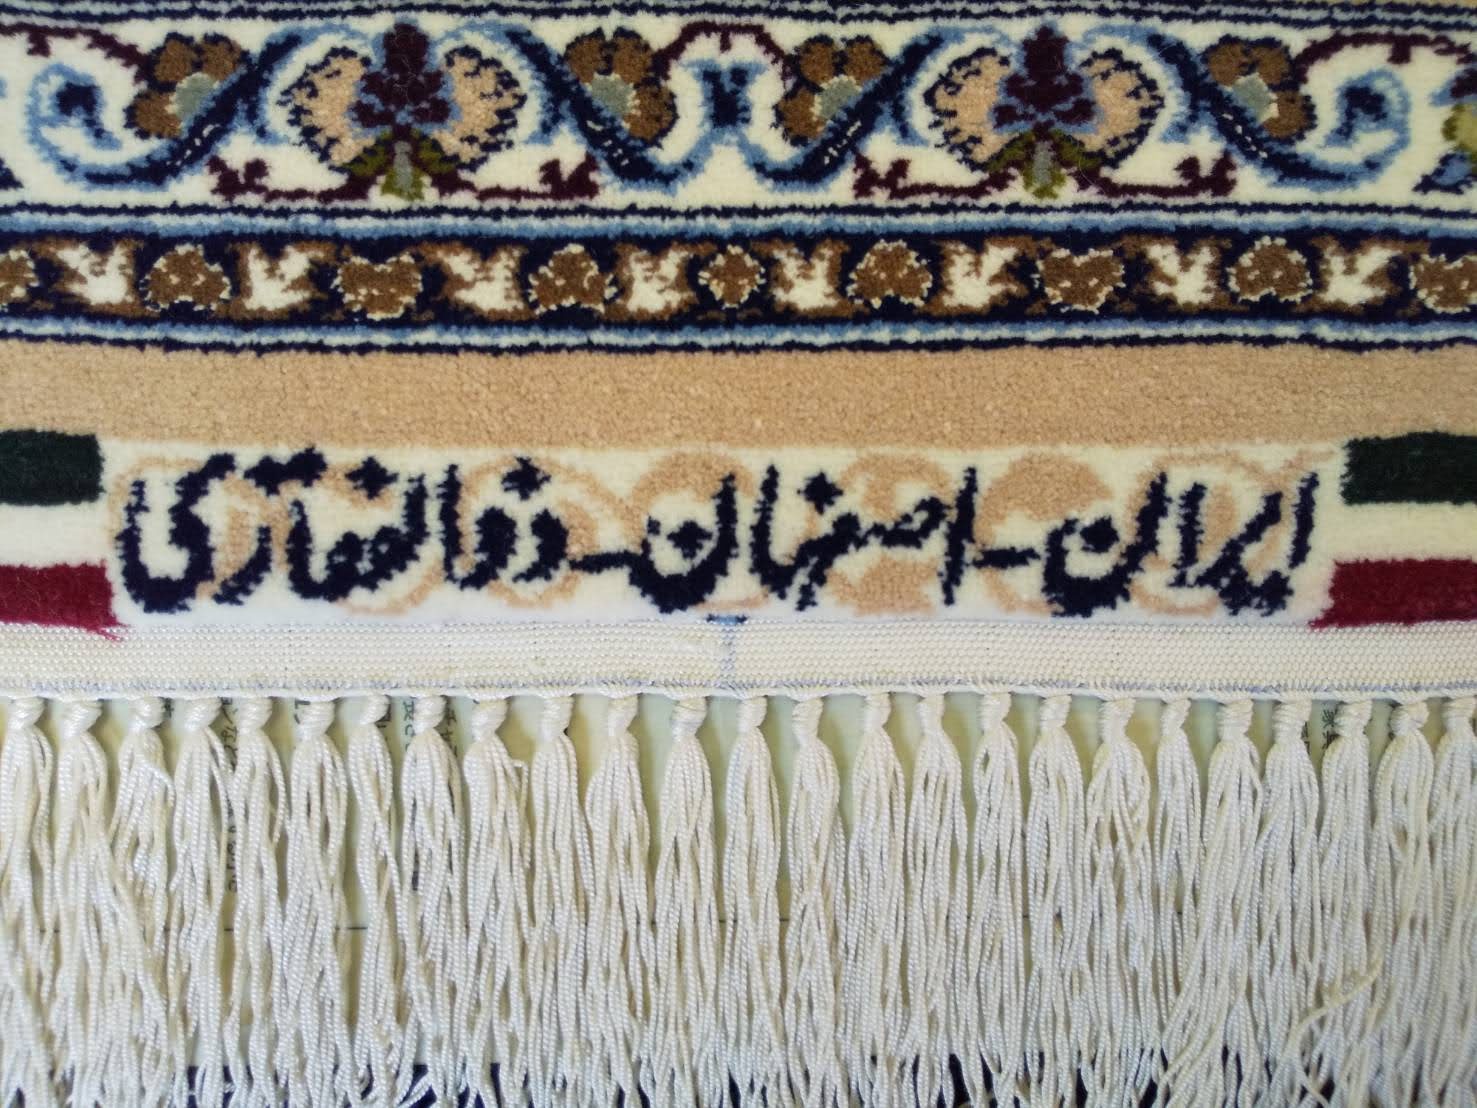 ایران - اصفهان - ذوالفقاری